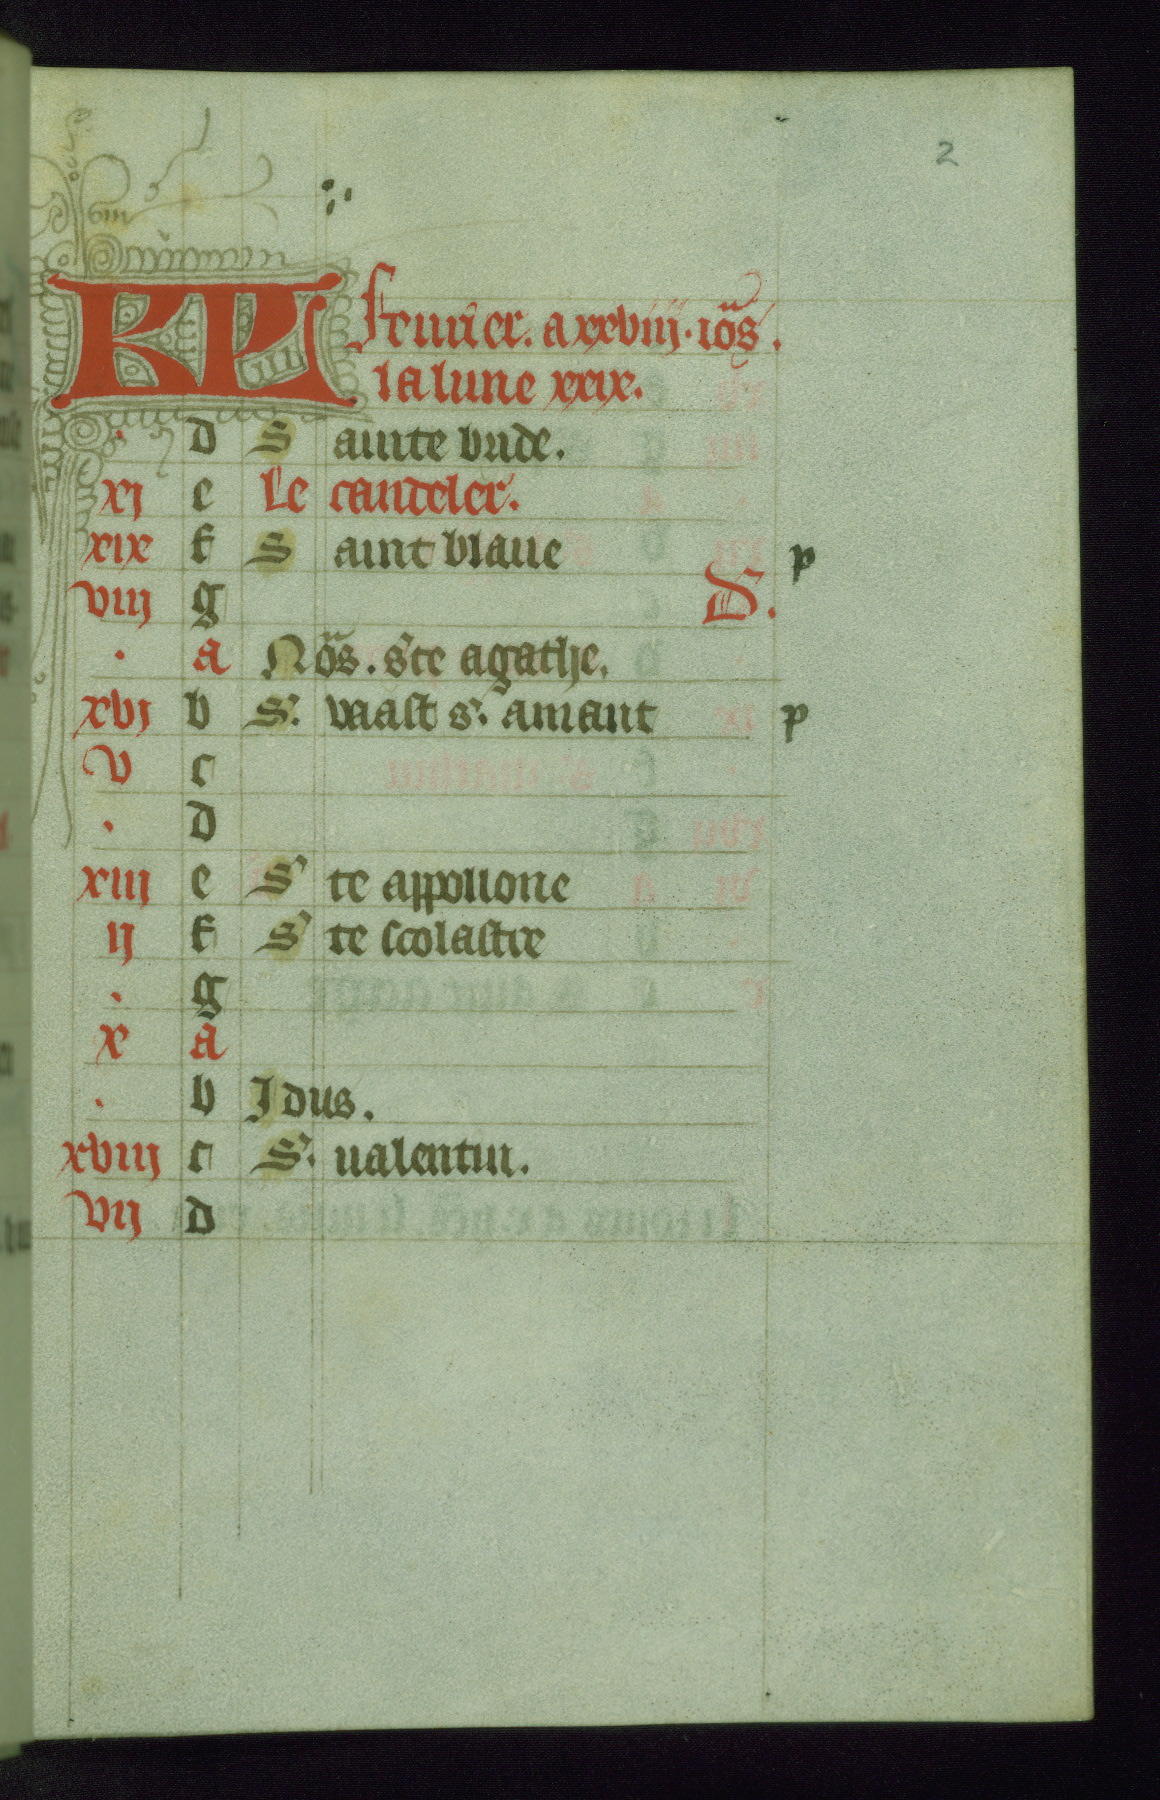 2
KL Feurier. a xxviii. iōs.
la lune xxix.
. d Sainte bride.
xi e Le candeler.
xix f Saint blaue p
viii g D.
. a Nōs. ste agathe.
xvi b S. vaast s. amant p
v c
. d
xiii e Ste appollone
ii f Ste scolastre
. g
x a
. b Idus.
xviii c S. ualentin.
vii d